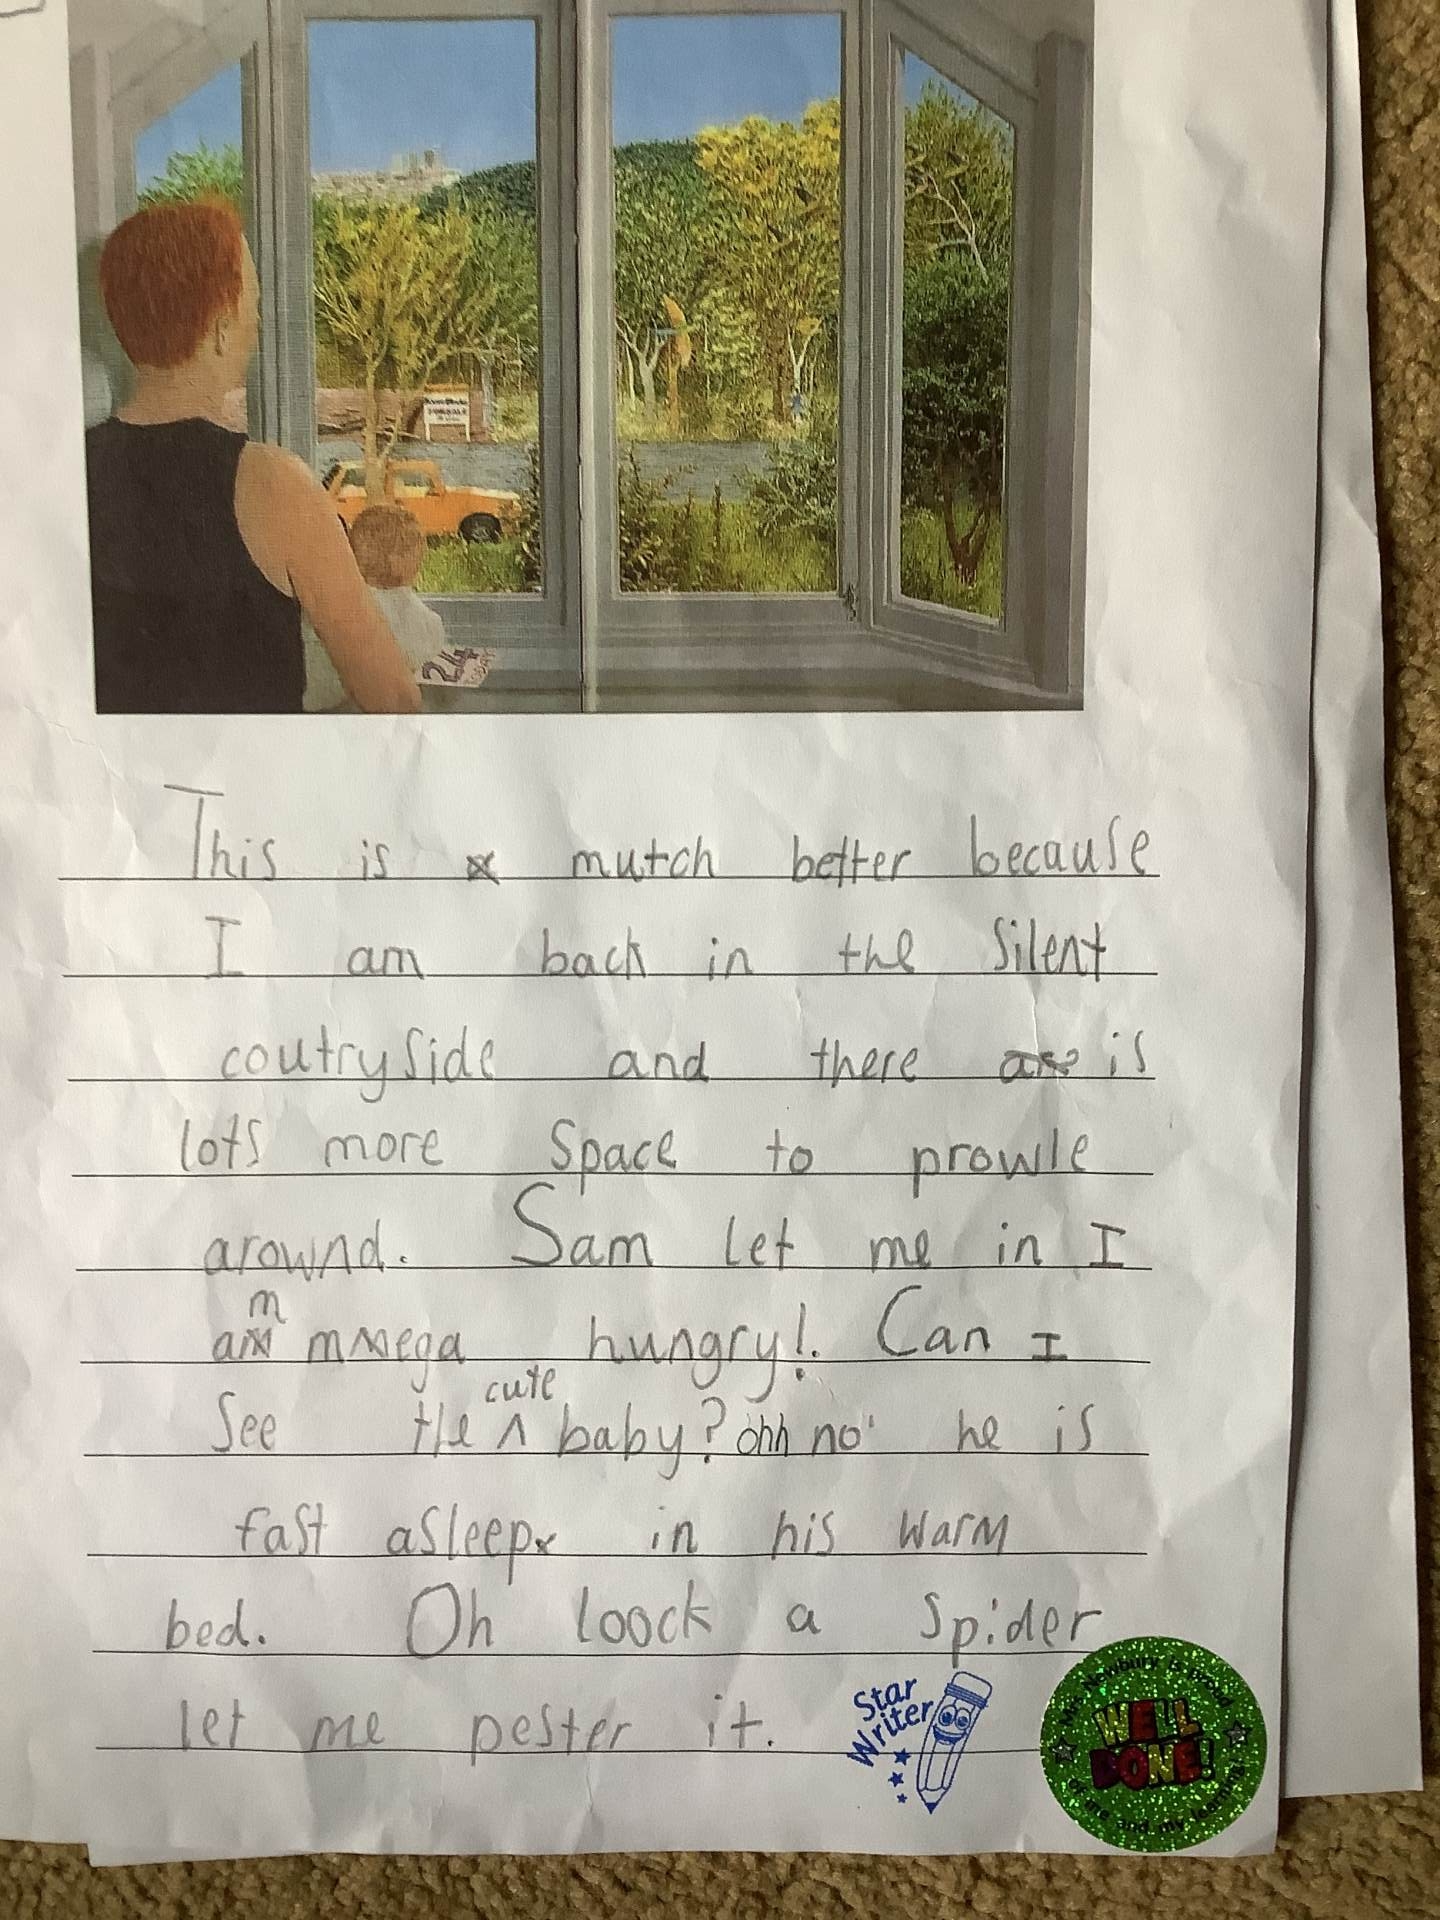 FOR SALE
24
This is mutch better because
I am back in the silent
coutryside and there is
lots more space to prowle
arownd. Sam let me in I
am mega hungry!. Can I
see the cute baby? ohh no he is
fast asleep in his warm
bed. Oh loock a spider
let me pester it.
Star
Writer
Mrs Newbury is proud
WELL
DONE!
of me and my learning!